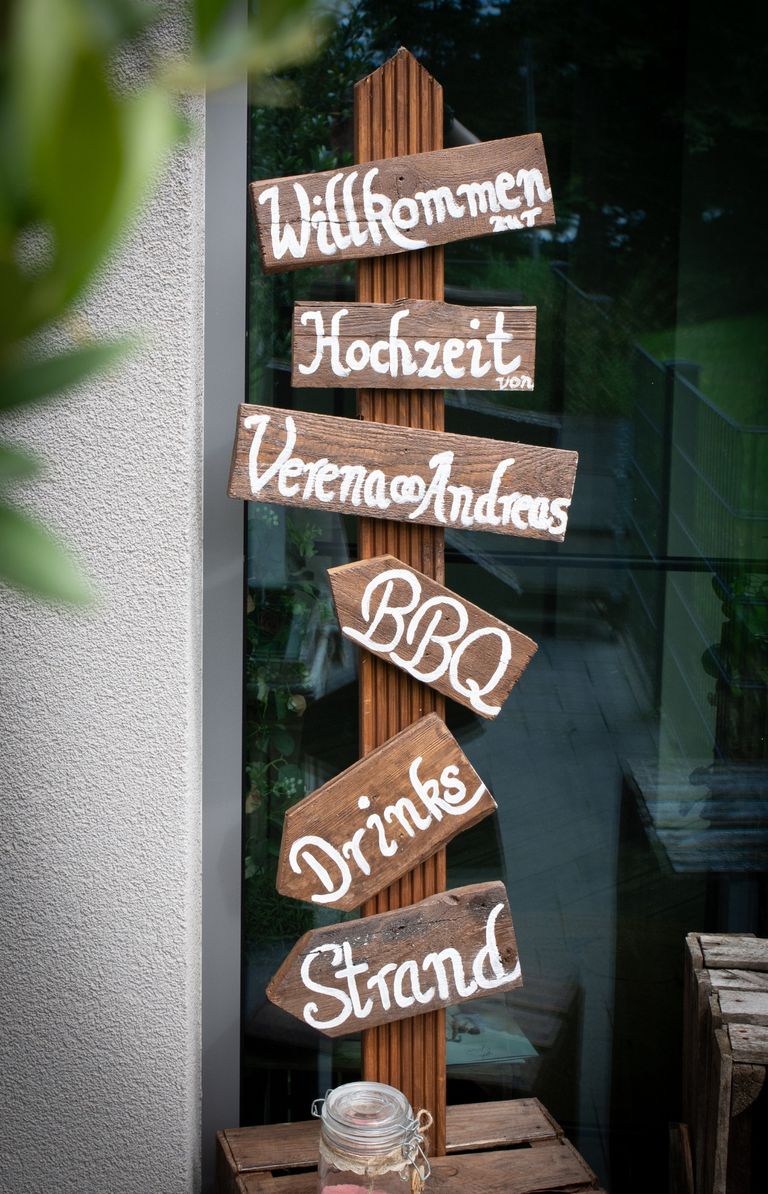 Willkommen
zur
Hochzeit
von
Verena∞Andreas
BBQ
Drinks
Strand